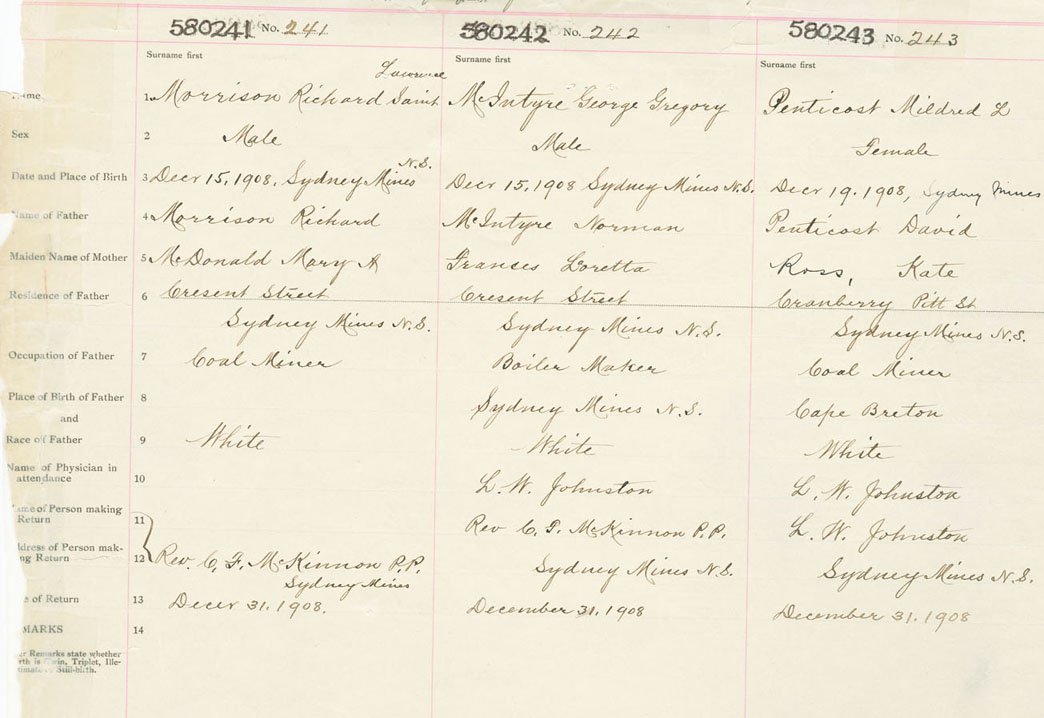 580241 No. 241 580242 No. 242 580243 No. 243
Surname first Surname first Surname first
Lawrence
Name 1 Morrison Richard Saint McIntyre George Gregory Penticost Mildred L
Sex 2 Male Male Female
N.S.
Date and Place of Birth 3 Decr 15, 1908, Sydney Mines Decr 15, 1908 Sydney Mines N.S. Decr 19. 1908, Sydney Mines
Name of Father 4 Morrison Richard McIntyre Norman Penticost David
Maiden Name of Mother 5 McDonald Mary A Franses Loretta Ross, Kate
Residence of Father 6 Cresent Street Cresent Street Cranberry Pitt St
Sydney Mines N.S. Sydney Mines N.S. Sydney Mines N.S.
Occupation of Father 7 Coal Miner Boiler Maker Coal Miner
Place of Birth of Father 8 Sydney Mines N.S. Cape Breton
and
Race of Father 9 White White White
Name of Physician in
attendance 10 L. W. Johnston L. W. Johnston
ame of Person making
Return 11 Rev C. F. McKinnon P.P. L. W. Johnston
ddress of Person mak-
ng Return 12 Rev. C. F. McKinnon P.P. Sydney Mines N.S. Sydney Mines N.S.
Sydney Mines
e of Return 13 Decer 31. 1908. December 31, 1908 December 31. 1908
MARKS 14
er Remarks state whether
rth is Twin, Triplet, Ille-
timate or Still-birth.